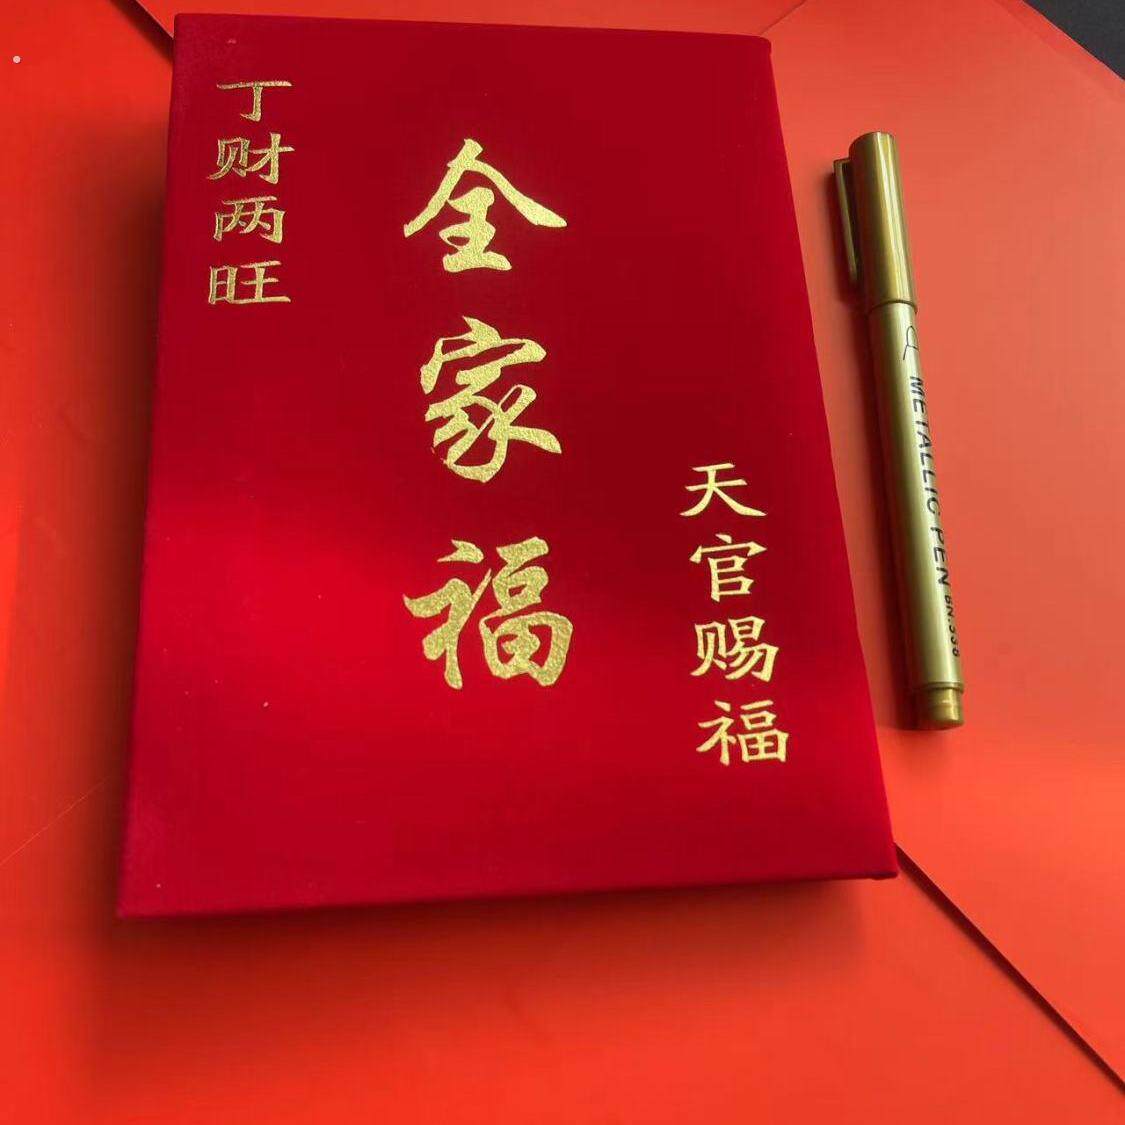 丁财两旺
全家福
天官赐福
METALLIC PEN BN.338